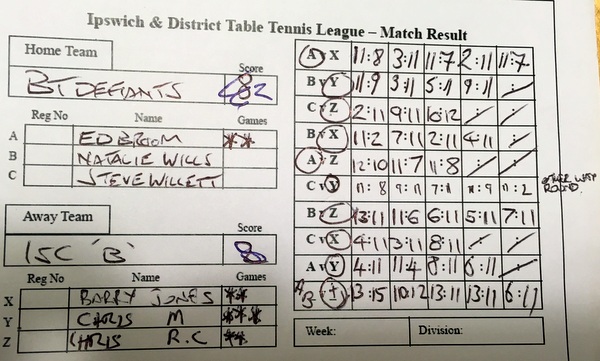 Ipswich & District Table Tennis League – Match Result
Home Team
Score
BT DEFIANTS 2
Reg No Name Games
A ED BROOM **
B NATALIE WILLS
C STEVE WILLETT
Away Team
Score
ISC 'B' 8
Reg No Name Games
X BARRY JONES **
Y CHRIS M ***
Z CHRIS R.C **
A v X 11:8 3:11 11:7 2:11 11:7
B v Y 11:9 3:11 5:11 9:11
C v Z 2:11 9:11 10:12
B v X 11:2 7:11 2:11 4:11
A v Z 12:10 11:7 11:8
C v Y 11:8 9:11 7:11 11:9 11:2 OTHER WAY ROUND.
B v Z 13:11 11:6 6:11 5:11 7:11
C v X 4:11 3:11 8:11
A v Y 4:11 11:4 8:11 6:11
13:15 10:12 13:11 13:11 6:11
Week: Division: